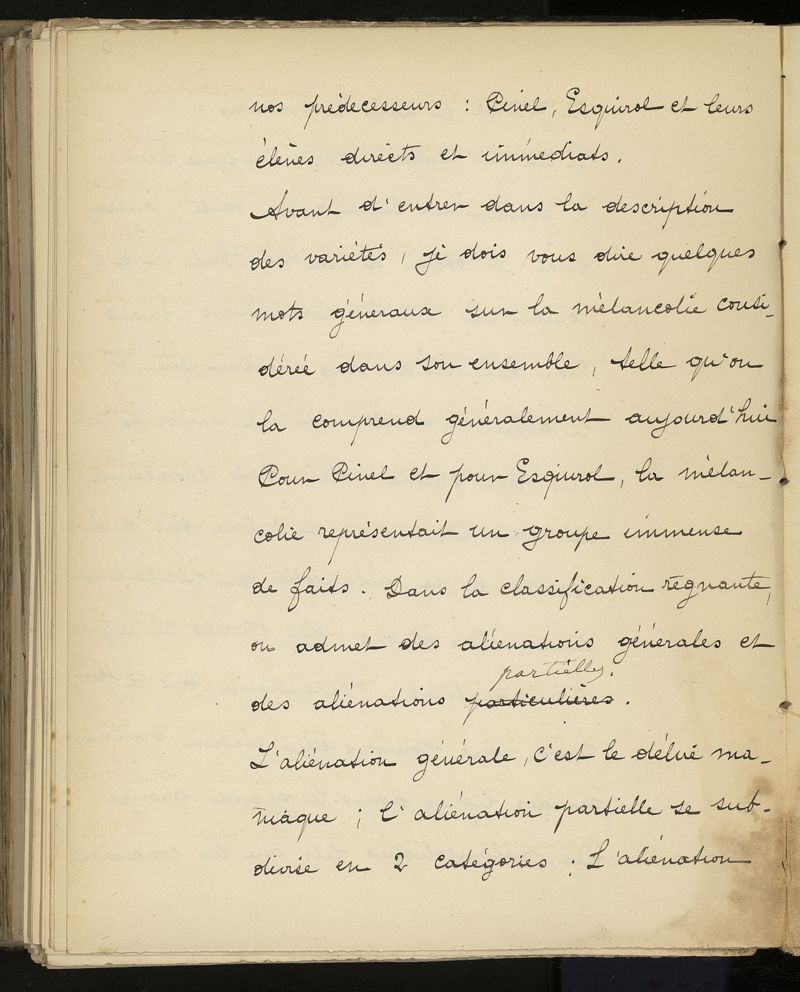 nos prédecesseurs : Pinel, Esquirol et leurs
élèves directs et immédiats.
Avant d'entrer dans la description
des variétés, je dois vous dire quelques
mots généraux sur la mélancolie consi-
dérée dans son ensemble, telle qu'on
la comprend généralement aujourd'hui
Pour Pinel et pour Esquirol, la mélan-
colie représentait un groupe immense
de faits. Dans la classification régnante,
on admet des aliénations générales et
partielles.
des aliénations particulières.
L'aliénation générale, c'est le délire ma-
niaque ; l'aliénation partielle se sub-
divise en 2 catégories : L'aliénation